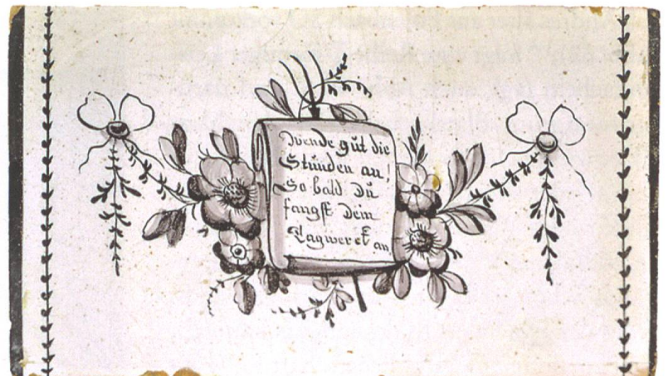 Wende gůt die
Stůnden an!
So bald dů
fangst dein
Tagwerck an